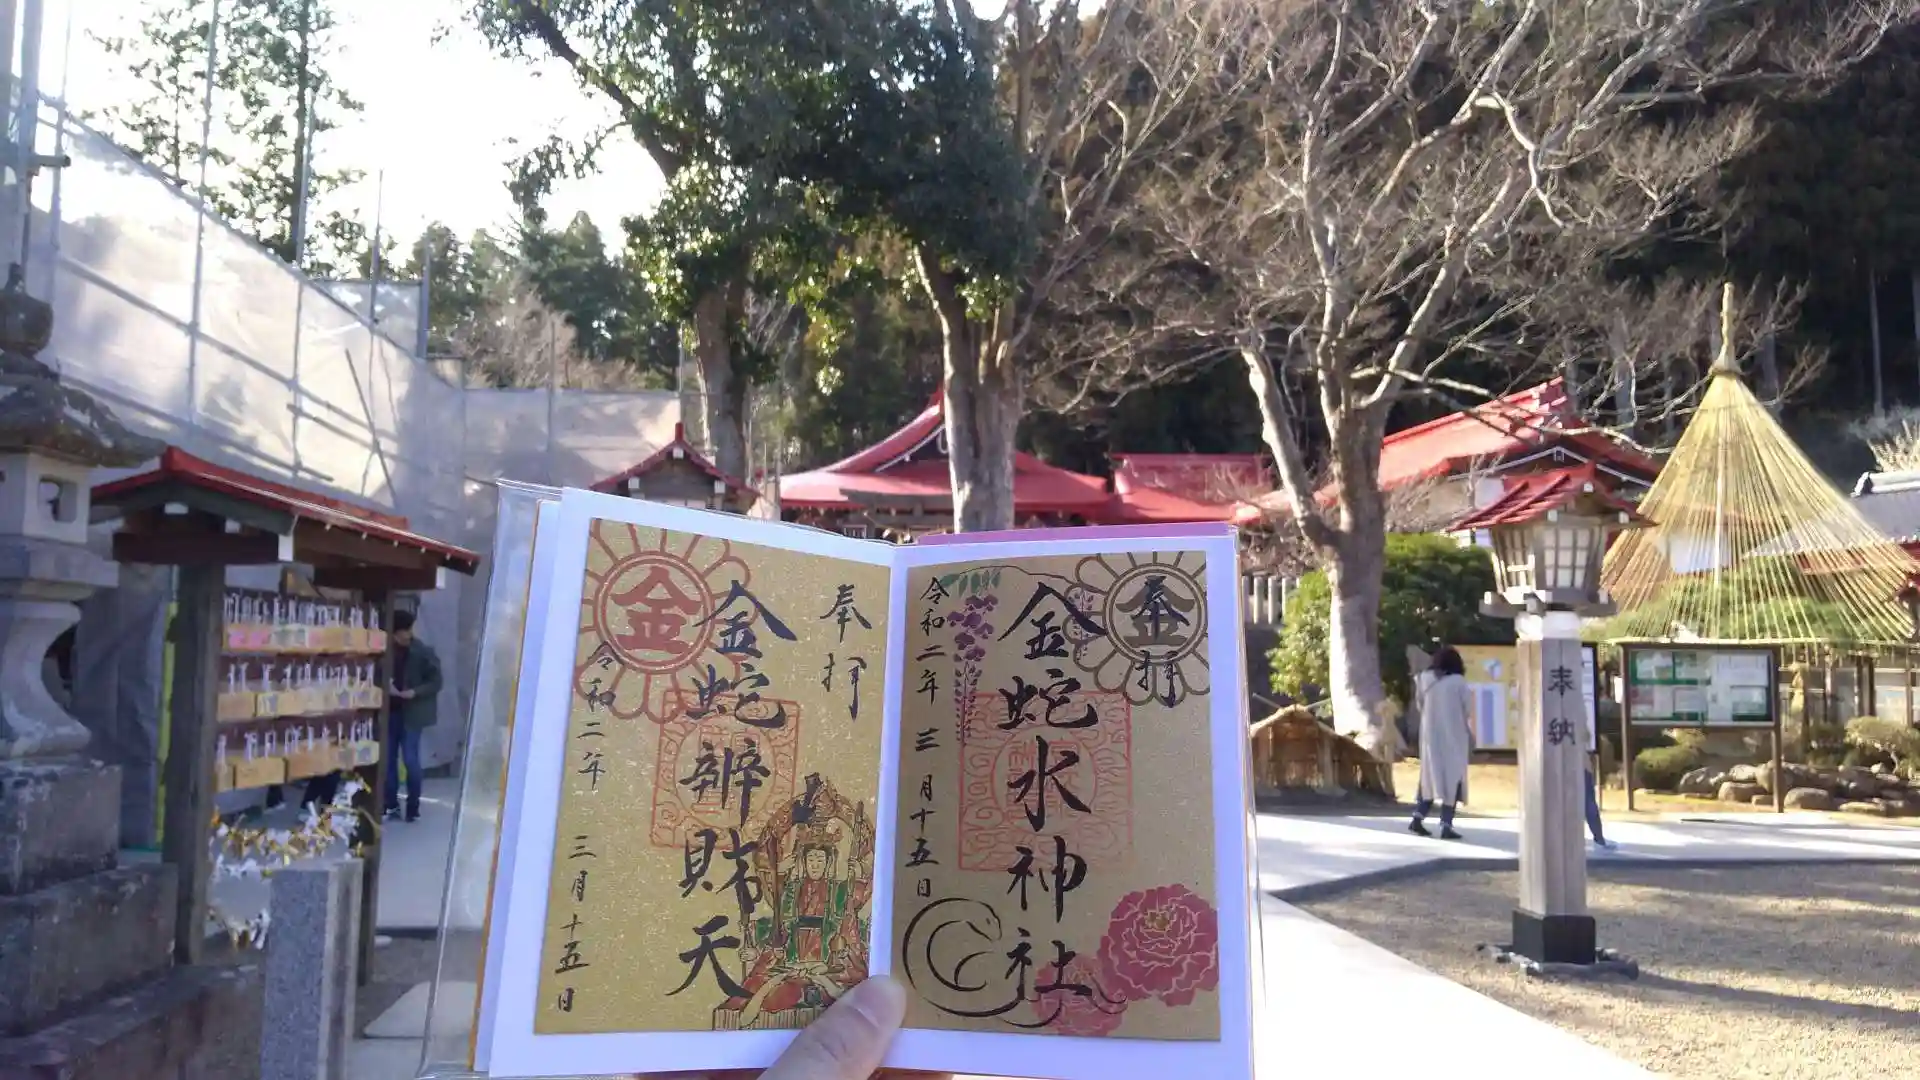 奉拝
金
金蛇辨財天
令和二年 三月十五日
奉拝
金
金蛇水神社
令和二年 三月十五日
奉納